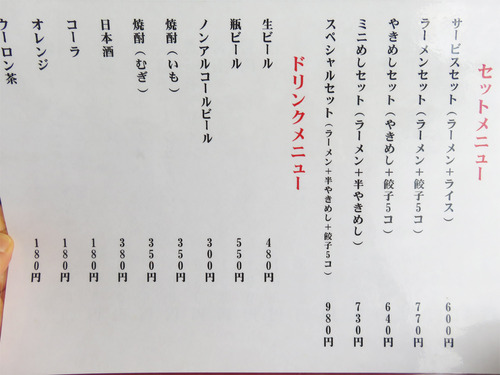 セットメニュー
サービスセット(ラーメン+ライス) 600円
ラーメンセット(ラーメン+餃子5コ) 770円
やきめしセット(やきめし+餃子5コ) 640円
ミニめしセット(ラーメン+半やきめし) 730円
スペシャルセット(ラーメン+半やきめし+餃子5コ) 980円
ドリンクメニュー
生ビール 480円
瓶ビール 550円
ノンアルコールビール 300円
焼酎(いも) 350円
焼酎(むぎ) 350円
日本酒 380円
コーラ 180円
オレンジ 180円
ウーロン茶 180円